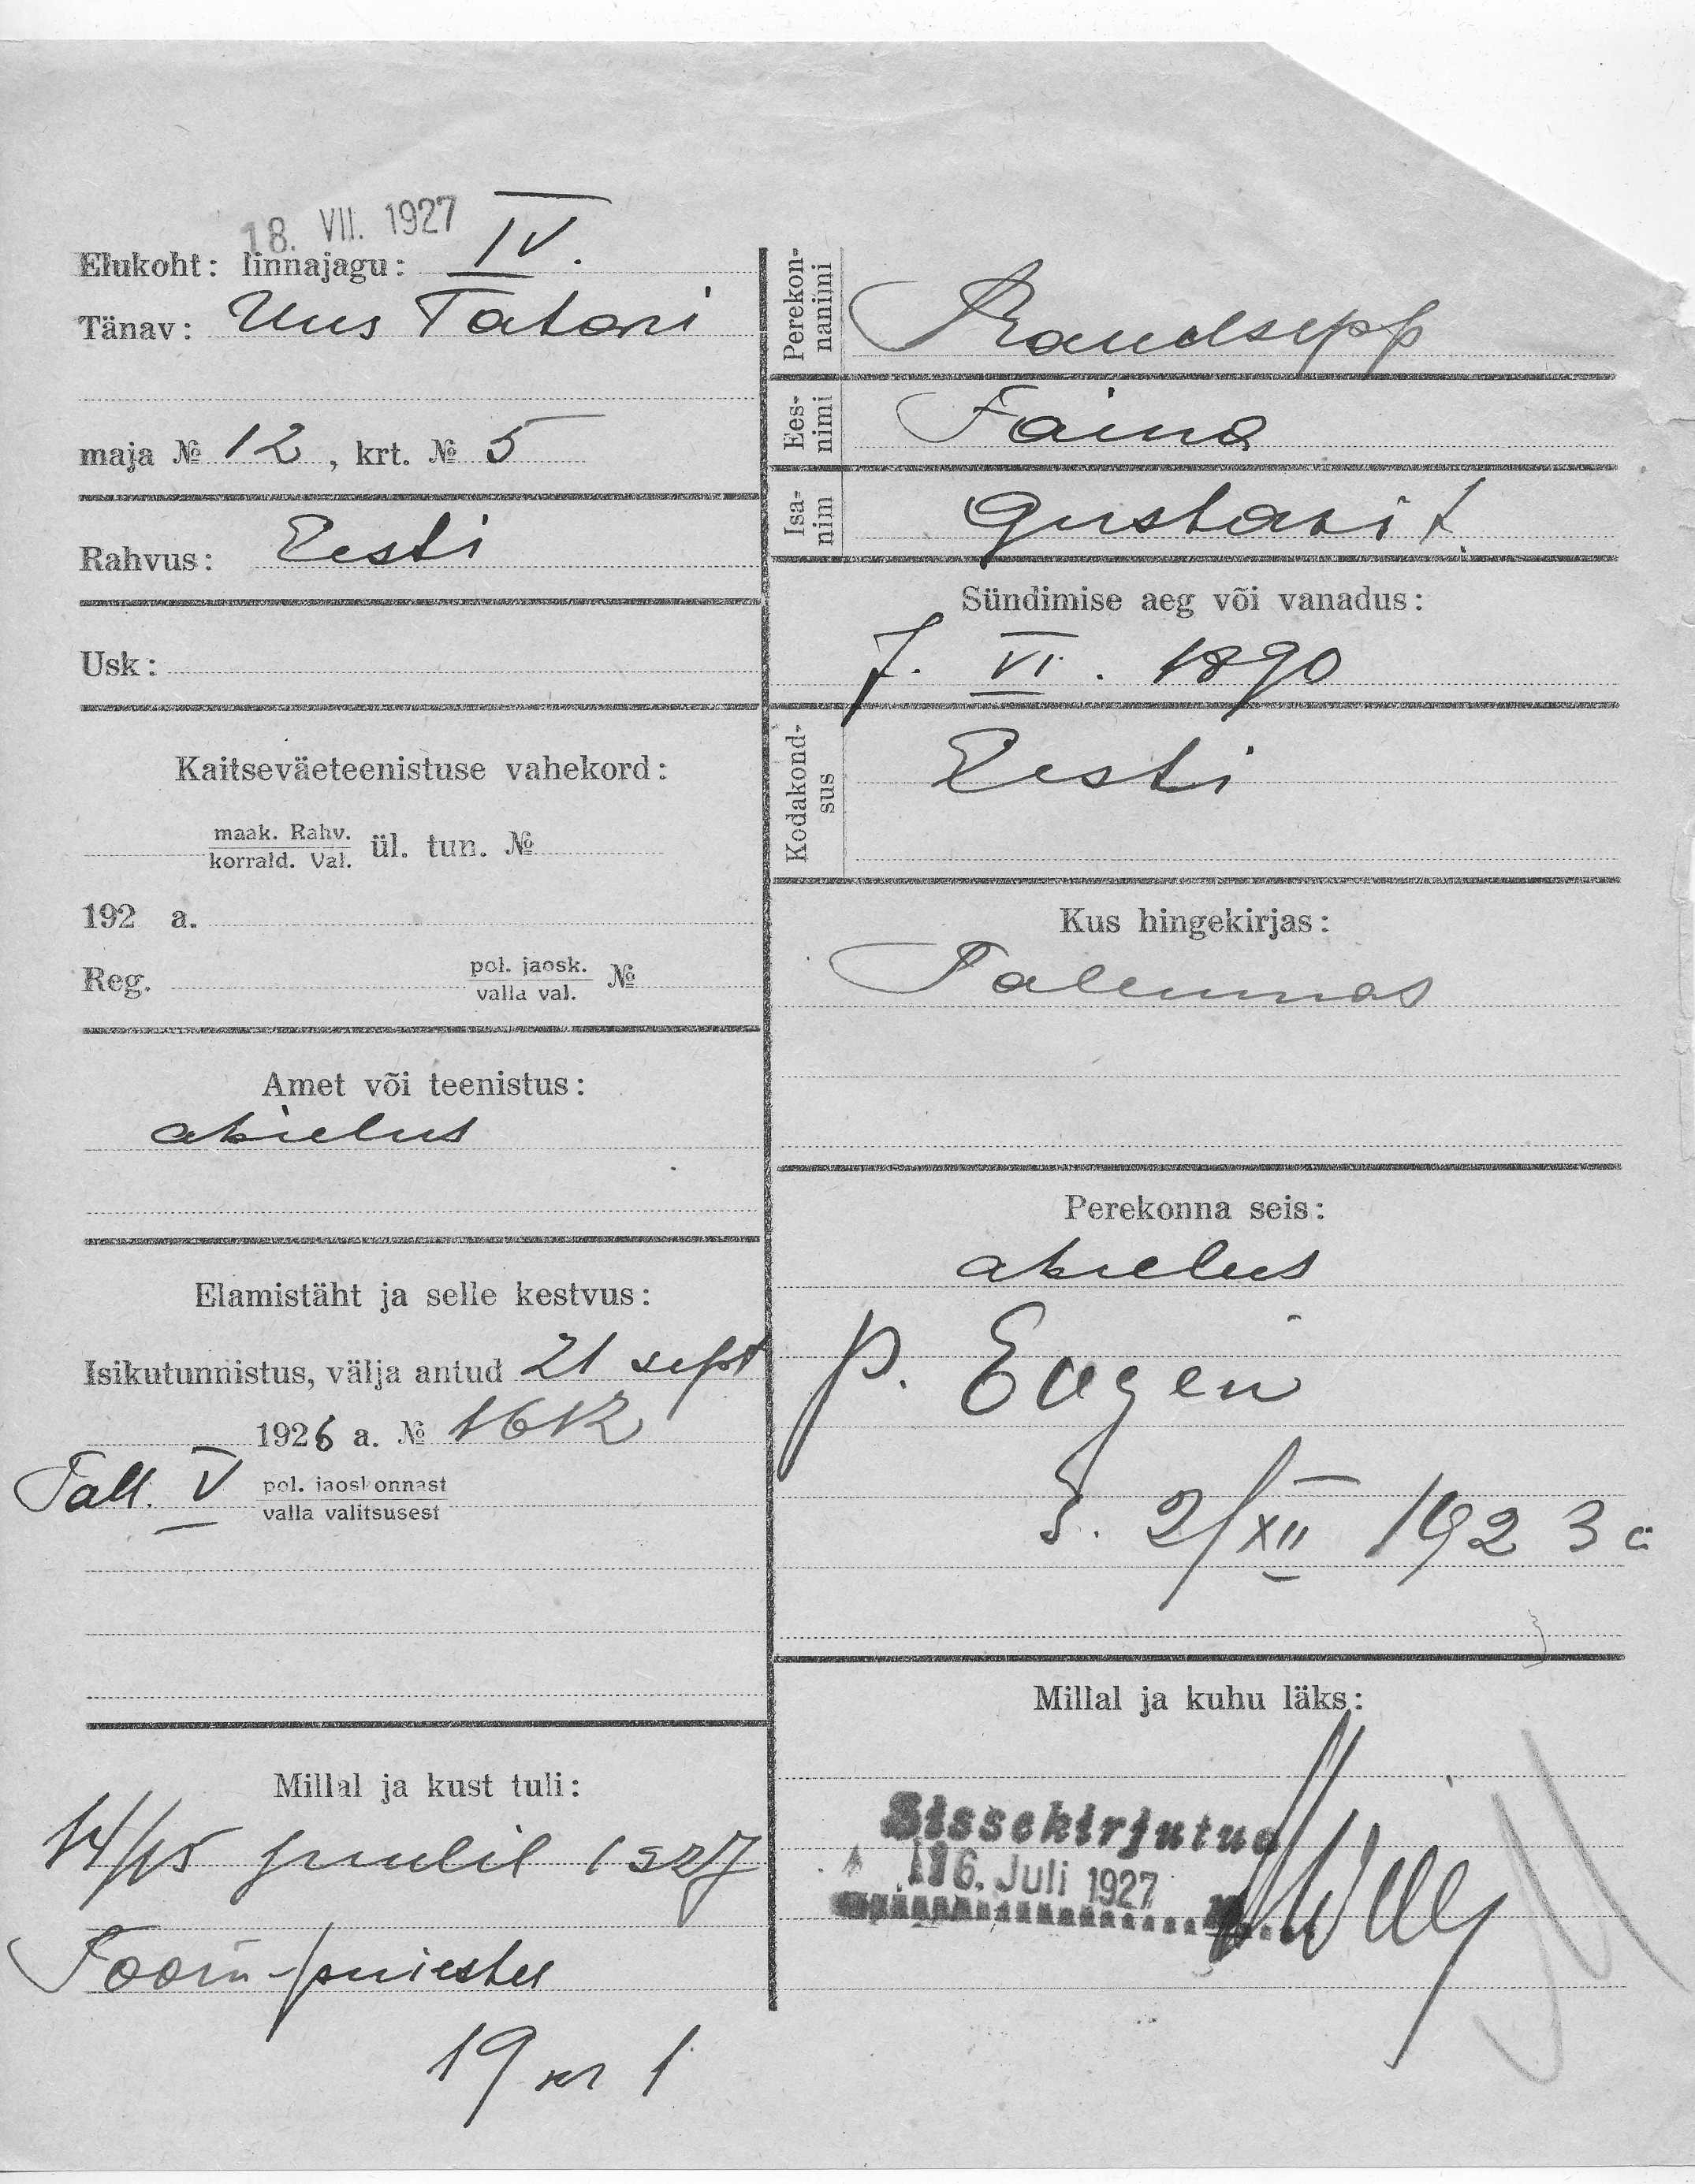 18. VII. 1927
Elukoht: linnajagu: IV.
Tänav: Uus Tatari
maja № 12, krt. № 5
Rahvus: Eesti
Usk:
Kaitseväeteenistuse vahekord:
maak. Rahv.
korrald. Val. ül. tun. №
192 a.
Reg. pol. jaosk. №
valla val.
Amet või teenistus:
abielus
Elamistäht ja selle kestvus:
Isikutunnistus, välja antud 21 sept
1926 a. № 1612
Tall. V pol. jaoskonnast
valla valitsusest
Millal ja kust tuli:
14/15 juulil 1927
Toom-puiestee
19 kr 1
Perekon-
nanimi
Raudsepp
Ees-
nimi
Faina
Isa-
nim
Gustavi t.
Sündimise aeg või vanadus:
7. VI. 1890
Kodakond-
sus
Eesti
Kus hingekirjas:
Tallinnas
Perekonna seis:
abielus
p. Eugen
S. 2/XII 1923 a
Millal ja kuhu läks:
Sissekirjutud
16. Juli 1927